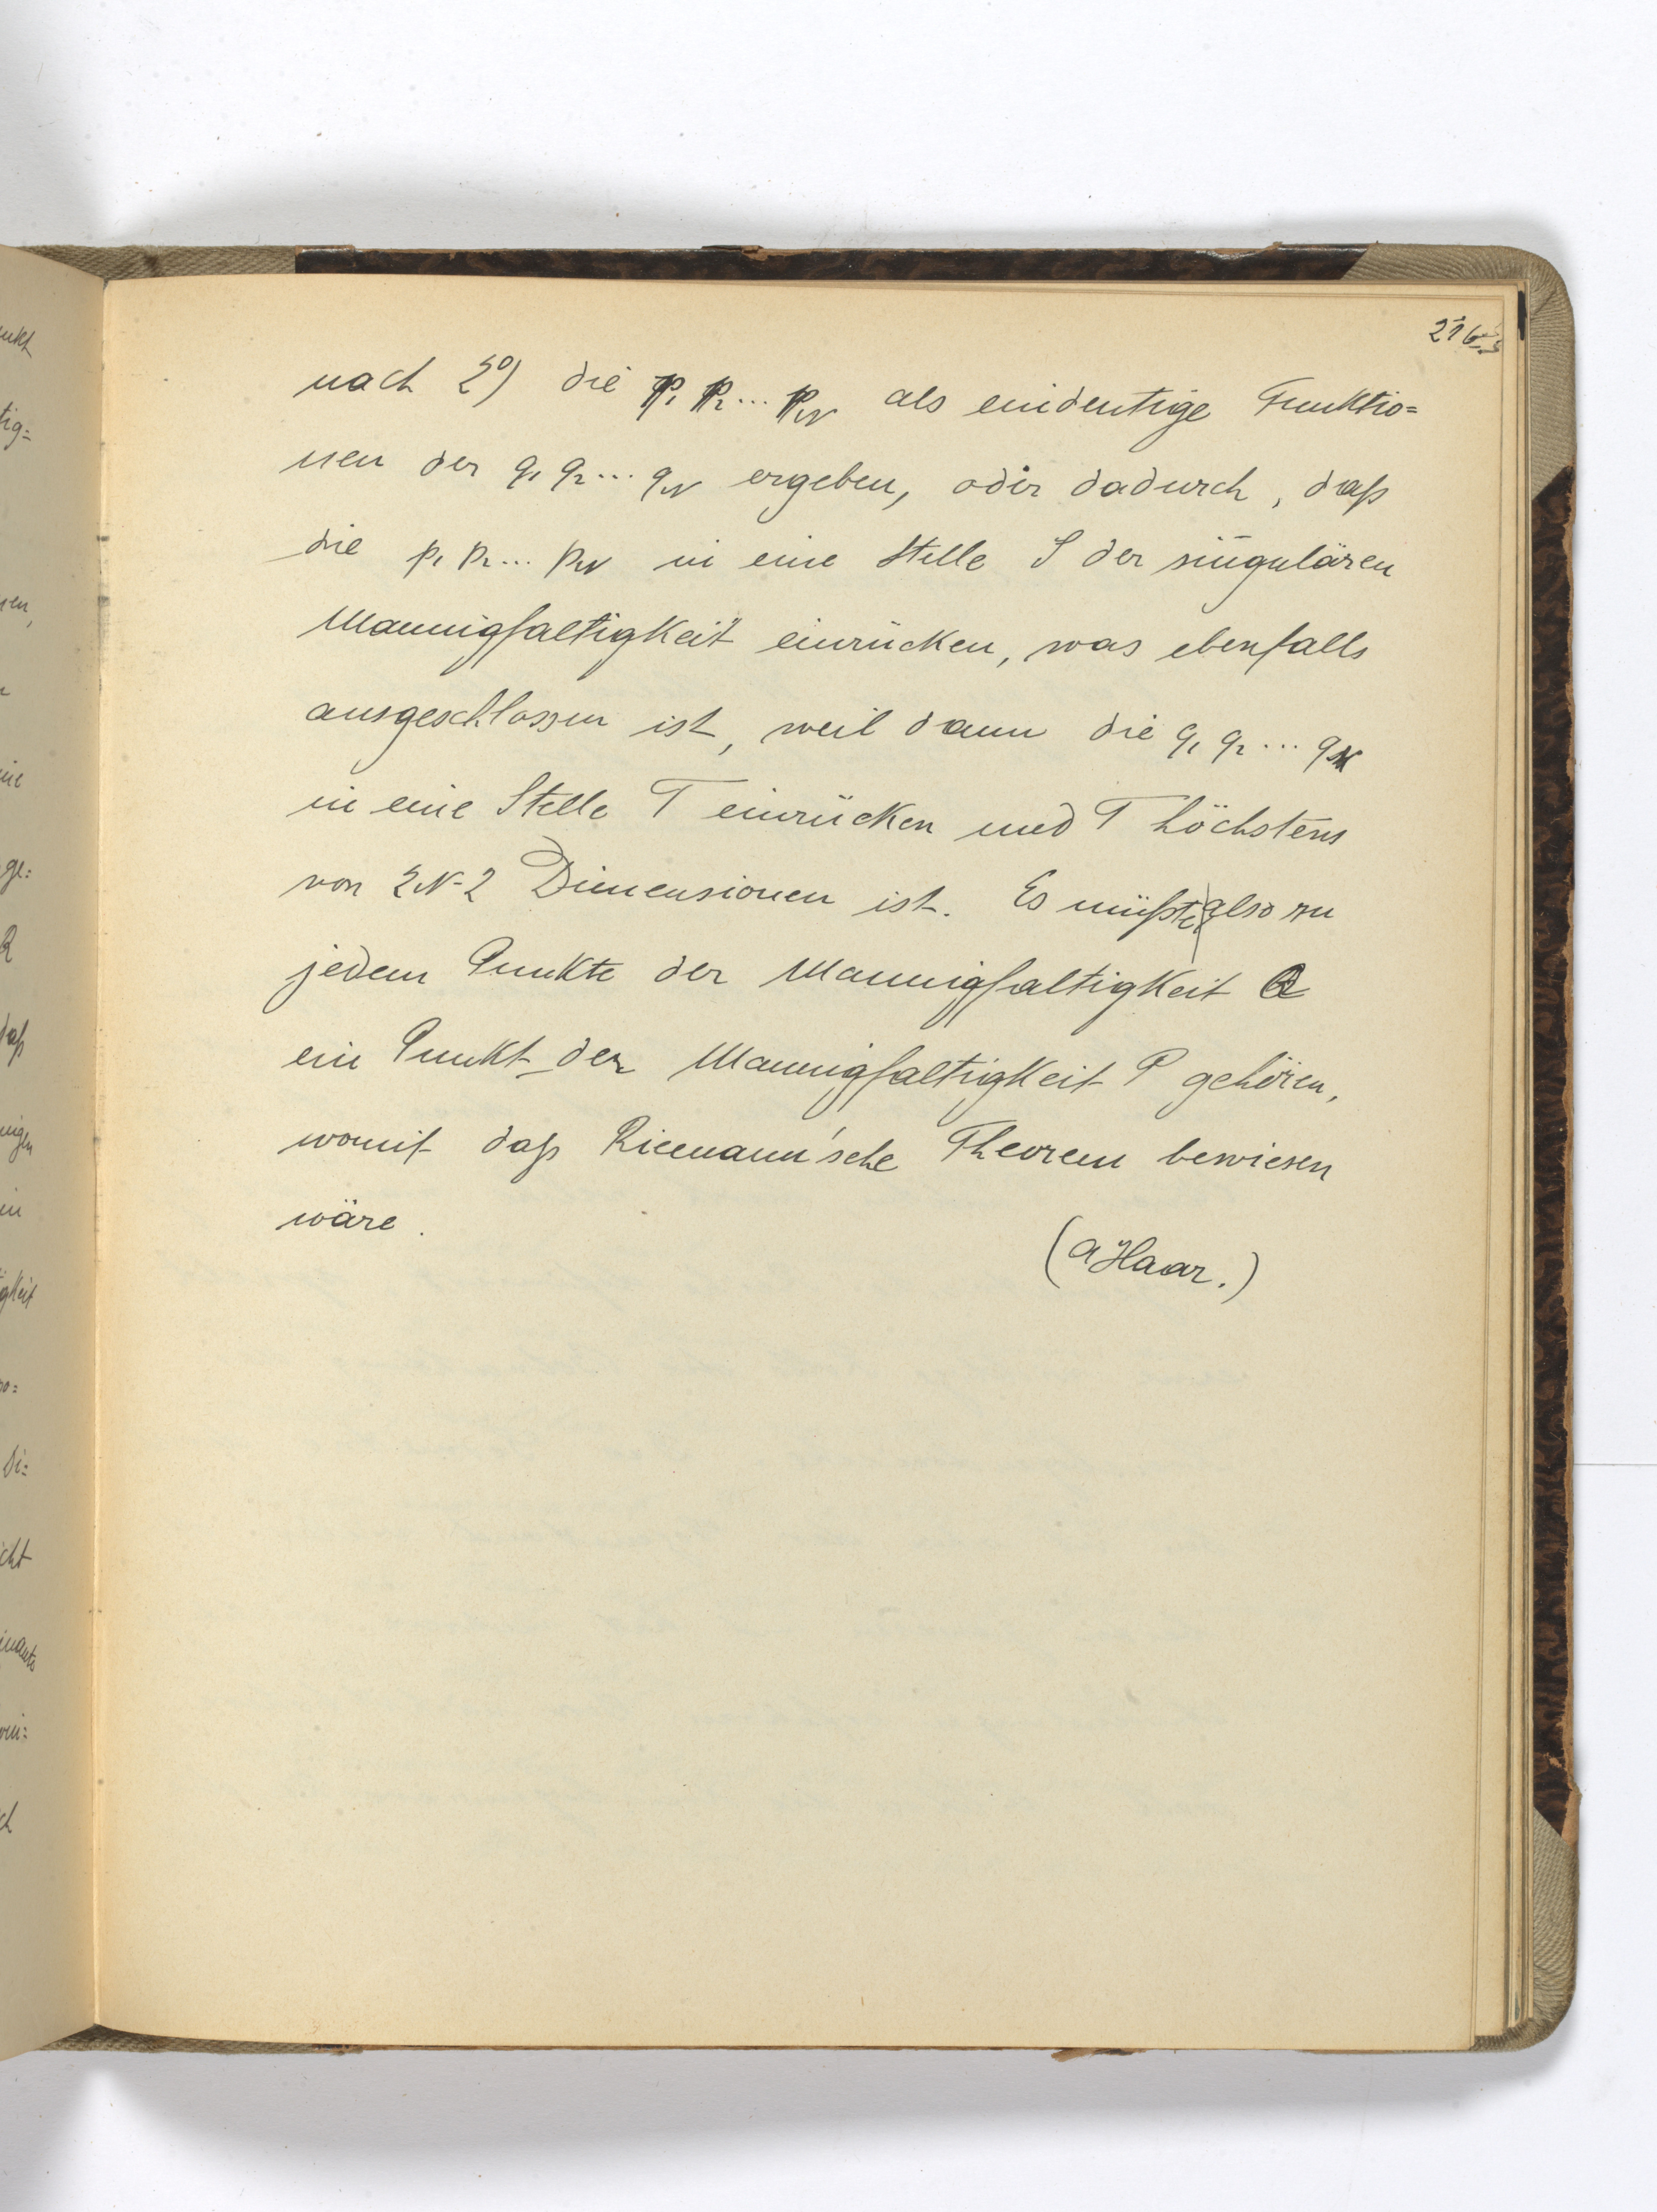 216
nach 2⁰) die p₁ p₂ ... p_N als eindeutige Funktio=
nen der q₁ q₂ ... q_N ergeben, oder dadurch, daß
die p₁ p₂ ... p_N in eine Stelle S der singulären
Mannigfaltigkeit einrücken, was ebenfalls
ausgeschlossen ist, weil dann die q₁ q₂ ... q_N
in eine Stelle T einrücken und T höchstens
von 2N-2 Dimensionen ist. Es müßte also zu
jedem Punkte der Mannigfaltigkeit Q
ein Punkt der Mannigfaltigkeit P gehören,
womit daß Riemann'sche Theorem bewiesen
wäre.
(A Haar.)